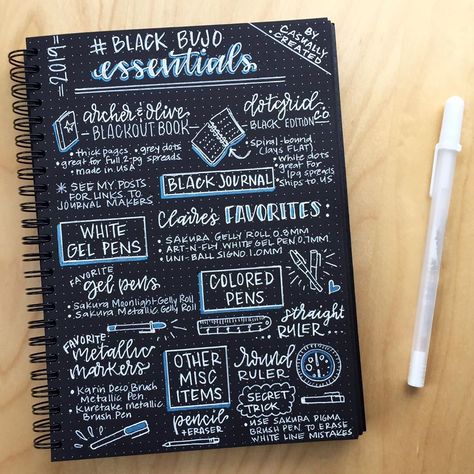 =2019=
# BLACK BUJO
essentials
BY
CASUALLY
CREATED
archer & olive
BLACKOUT BOOK
• thick pages • grey dots
• great for full 2-pg spreads
• made in USA
* SEE MY POSTS
FOR LINKS TO
JOURNAL MAKERS
dotgrid
CO.
BLACK EDITION
• Spiral-bound
(lays FLAT)
• white dots
• great for
1pg spreads
• Ships to US
BLACK JOURNAL
WHITE
GEL PENS
Claire's FAVORITES
• SAKURA GELLY ROLL 0.8mm
• ART-N-FLY WHITE GEL PEN 0.7mm
• UNI-BALL SIGNO 1.0mm
FAVORITE
gel pens
• Sakura Moonlight Gelly Roll
• Sakura Metallic Gelly Roll
COLORED
PENS
straight
RULER
FAVORITE
metallic
markers
• Karin Deco Brush
Metallic Pen
• Kuretake Metallic
Brush Pen
OTHER
MISC
ITEMS
round
RULER
pencil
+ ERASER
SECRET
TRICK
• USE SAKURA PIGMA
BRUSH PEN TO ERASE
WHITE LINE MISTAKES